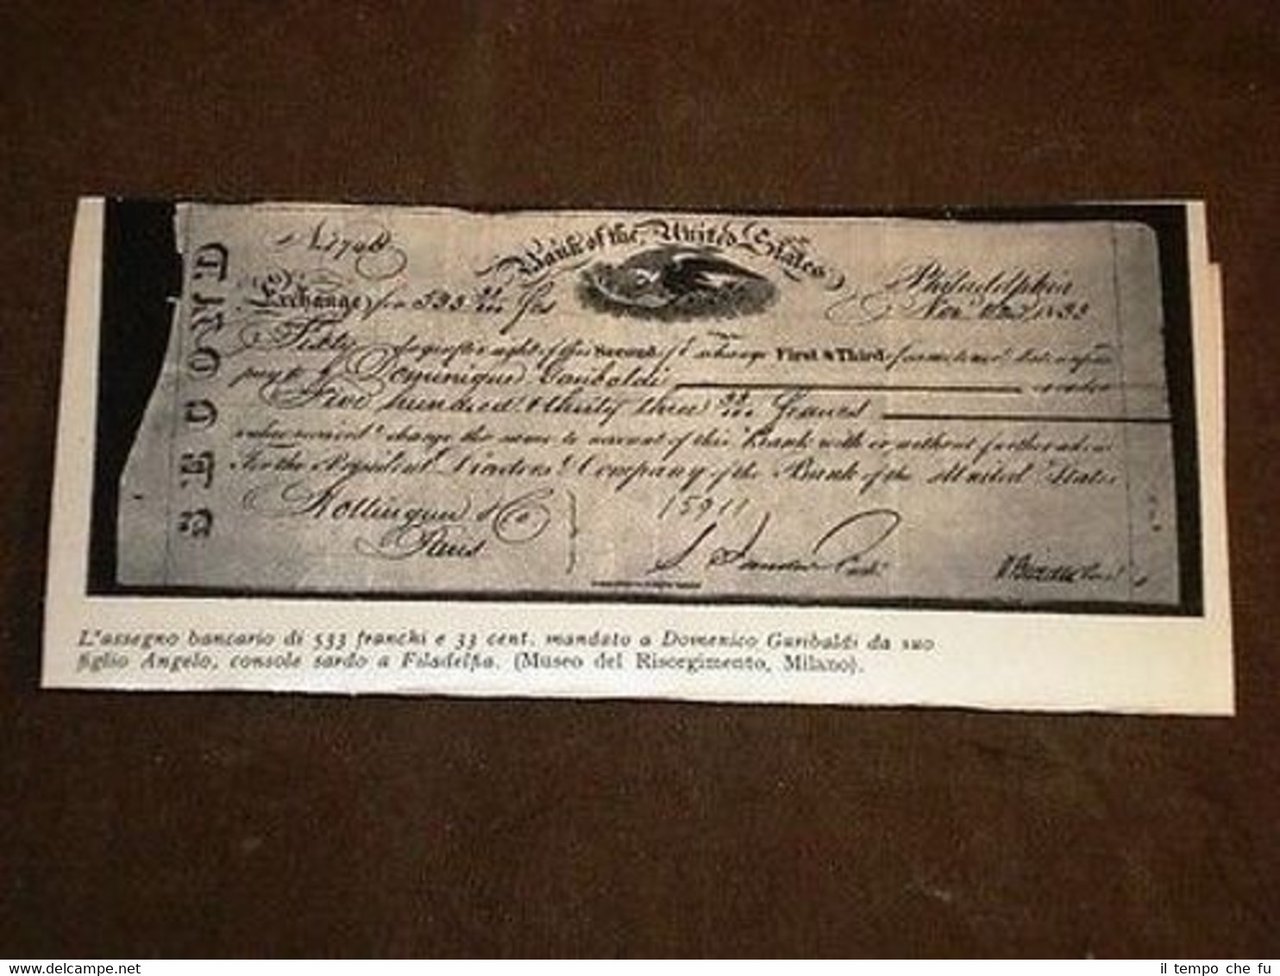 Bank of the United States
Exchange for 533 33/100 frs
Philadelphia
SECOND
Sixty days after sight of this Second of Exchange First & Third of same tenor
pay to Dominique Garibaldi
Five hundred & thirty three 33/100 Francs
value received & charge the same to account of this Bank with or without further advice
For the President, Directors & Company of the Bank of the United States
Hottinguer & Co
Paris
15911
L'assegno bancario di 533 franchi e 33 cent. mandato a Domenico Garibaldi da suo
figlio Angelo, console sardo a Filadelfia. (Museo del Risorgimento, Milano).
www.delcampe.net
il tempo che fu